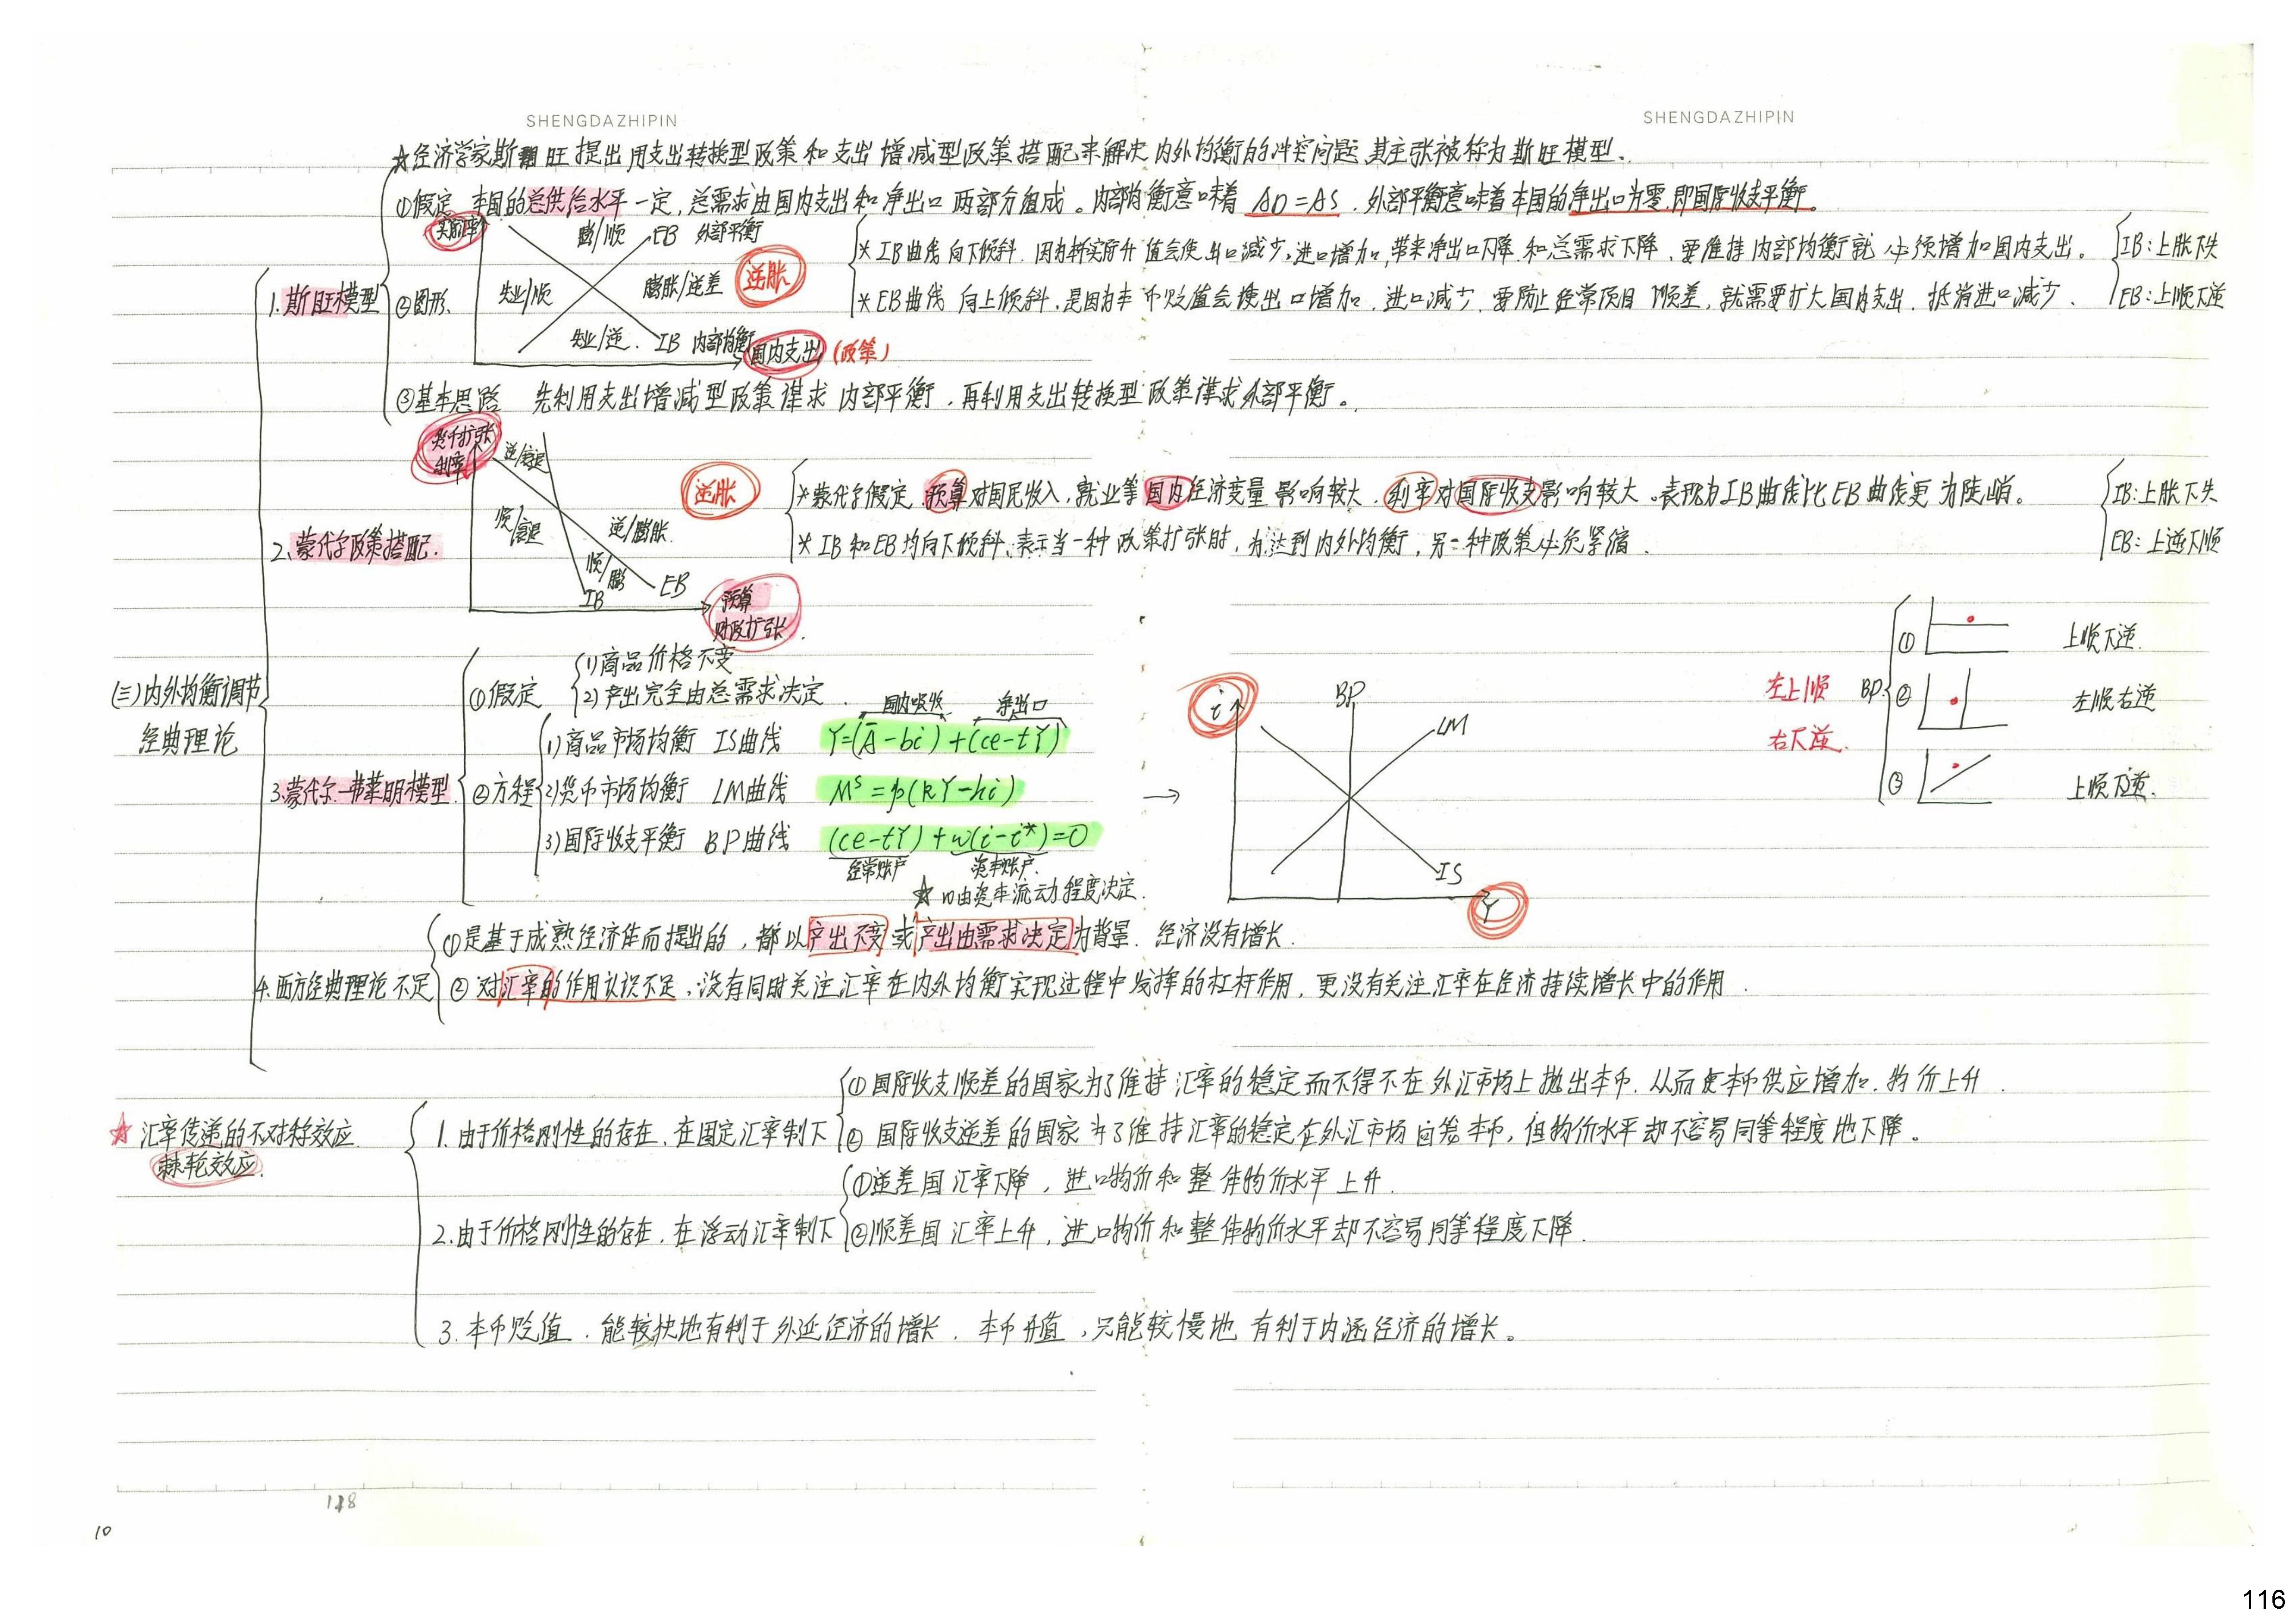 SHENGDAZHIPIN
SHENGDAZHIPIN
☆经济学家斯旺提出用支出转换型政策和支出增减型政策搭配来解决内外均衡的冲突问题,其主张被称为斯旺模型.
①假定 本国的总供给水平一定,总需求由国内支出和净出口两部分组成。内部均衡意味着 AD=AS.外部平衡意味着本国的净出口为零.即国际收支平衡。
1.斯旺模型
②图形.
膨/顺 EB 外部平衡
失业/顺
膨胀/逆差
逆胀
失业/逆. IB 内部均衡
国内支出 (政策)
*IB曲线向下倾斜.因为本币实际升值会使出口减少,进口增加,带来净出口下降.和总需求下降,要维持内部均衡就必须增加国内支出。
*EB曲线向上倾斜,是因为本币贬值会使出口增加,进口减少,要防止经常项目顺差,就需要扩大国内支出.抵消进口减少.
IB:上胀下失
EB:上顺下逆
③基本思路 先利用支出增减型政策谋求内部平衡,再利用支出转换型政策谋求外部平衡。
2、蒙代尔政策搭配.
货币扩张
利率
逆/衰退
顺/衰退
逆/膨胀
顺/膨
IB
EB
预算
财政扩张.
逆胀
*蒙代尔假定,预算对国民收入,就业等国内经济变量影响较大.利率对国际收支影响较大。表现为IB曲线比EB曲线更为陡峭。
*IB和EB均向下倾斜,表示当一种政策扩张时,为达到内外均衡,另一种政策必须紧缩.
IB:上胀下失
EB:上逆下顺
(三)内外均衡调节
经典理论
3.蒙代尔-弗莱明模型
①假定
1)商品价格不变
2)产出完全由总需求决定.
②方程
国内吸收 净出口
1)商品市场均衡 IS曲线 Y=(Ā-bi)+(ce-tY)
2)货币市场均衡 LM曲线 Mˢ=p(kY-hi)
3)国际收支平衡 BP曲线 (ce-tY)+w(i-i*)=0
经常账户 资本账户.
☆ w由资本流动程度决定.
→
i
BP
LM
IS
Y
左上顺
右下逆.
BP
① 上顺下逆.
② 左顺右逆
③ 上顺下逆.
4.西方经典理论不足
①是基于成熟经济体而提出的,都以产出不变或产出由需求决定为背景.经济没有增长.
②对汇率的作用认识不足,没有同时关注汇率在内外均衡实现过程中发挥的杠杆作用,更没有关注汇率在经济持续增长中的作用.
☆ 汇率传递的不对称效应.
棘轮效应.
1.由于价格刚性的存在,在固定汇率制下
①国际收支顺差的国家为了维持汇率的稳定而不得不在外汇市场上抛出本币.从而使本币供应增加.物价上升.
②国际收支逆差的国家为了维持汇率的稳定在外汇市场回笼本币,但物价水平却不容易同等程度地下降。
2.由于价格刚性的存在,在浮动汇率制下
①逆差国汇率下降,进口物价和整体物价水平上升.
②顺差国汇率上升,进口物价和整体物价水平却不容易同等程度下降.
3.本币贬值.能较快地有利于外延经济的增长.本币升值,只能较慢地有利于内涵经济的增长。
10
116